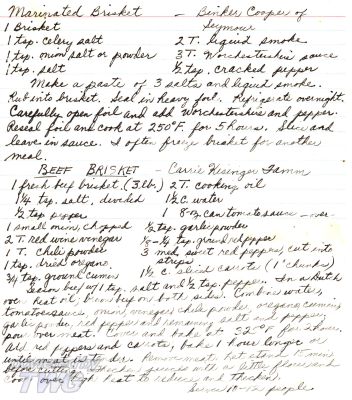 Marinated Brisket — Binker Cooper of Seymour
1 Brisket
1 tsp. celery salt 2 T. liquid smoke
1 tsp. onion salt or powder 3 T. Worchestershire sauce
1 tsp. salt ½ tsp. cracked pepper
Make a paste of 3 salts and liquid smoke.
Rub into brisket. Seal in heavy foil. Refrigerate overnight.
Carefully open foil and add Worchestershire and pepper.
Reseal foil and cook at 250°F. for 5 hours. Slice and
leave in sauce. I often freeze brisket for another
meal.
BEEF BRISKET — Carrie Kisinger Tamm
1 fresh beef brisket (3 lbs.) 2 T. cooking oil
1¼ tsp. salt, divided 1½ c. water
½ tsp pepper 1 8-oz can tomato sauce
1 small onion, chopped ½ tsp. garlic powder
2 T. red wine vinegar tsp. ground red pepper
1 T. chili powder 3 med. sweet red peppers, cut into
1 tsp. dried oregano strips
¾ tsp. ground cumin 1½ c. sliced carrots (1" chunks)
Season beef w/ 1 tsp. salt and ½ tsp. pepper. In a Dutch
oven heat oil; brown beef on both sides. Combine water,
tomato sauce, onion, vinegar, chili powder, oregano, cumin,
garlic powder, red pepper and remaining salt and pepper;
pour over meat. Cover and bake at 325°F for hours.
Add red peppers and carrots; bake 1 hour longer or
until meat is tender. Remove meat. Let stand 15 min.
before cutting. Thicken juices with a little flour and
cook over high heat to reduce and thicken.
Serves 10-12 people
TWC